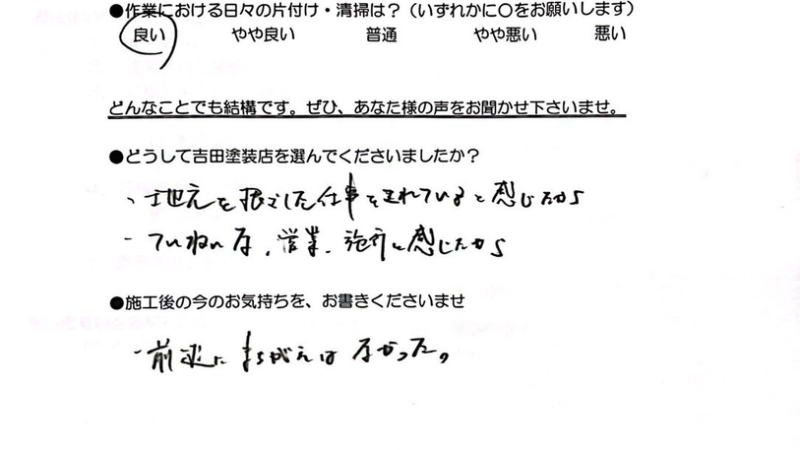 ●作業における日々の片付け・清掃は？（いずれかに〇をお願いします）
良い やや良い 普通 やや悪い 悪い
どんなことでも結構です。ぜひ、あなた様の声をお聞かせ下さいませ。
●どうして吉田塗装店を選んでくださいましたか？
、地元を根ざした仕事をされていると感じたから
- ていねいな、営業、施行と感じたから
●施工後の今のお気持ちを、お書きくださいませ
- 前述にまちがえはなかった。